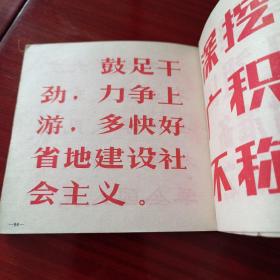 鼓足干
劲，力争上
游，多快好
省地建设社
会主义。
深挖
广积
不称